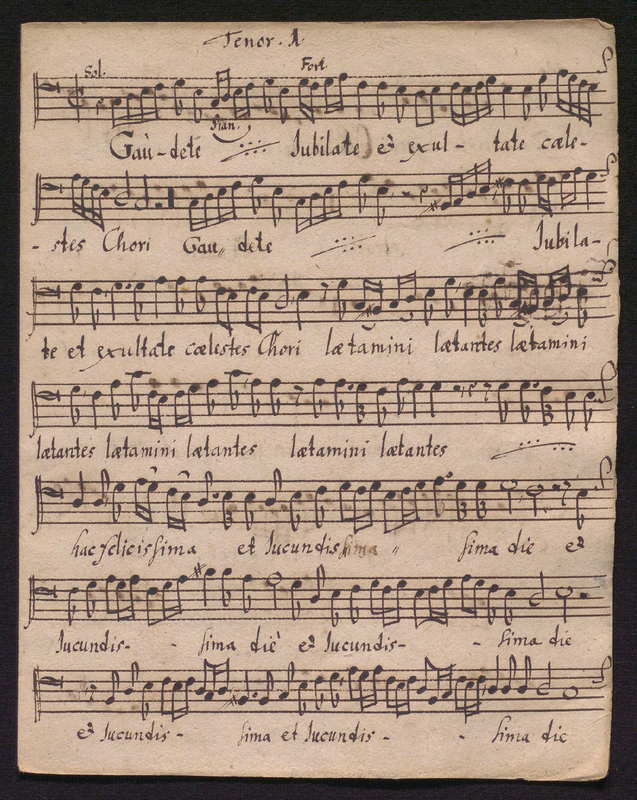 Tenor. 1.
Sol. Fort.
Pian.
Gau-dete Jubilate et exul- tate cæle-
-stes Chori Gau„ dete Jubila-
te et exultate cælestes Chori lætamini lætantes lætamini
lætantes lætamini lætantes lætamini lætantes
hac felicissima et Jucundissima „ sima die et
Jucundis- - sima die et Jucundis- - sima die
et Jucundis- sima et Jucundis- - sima die